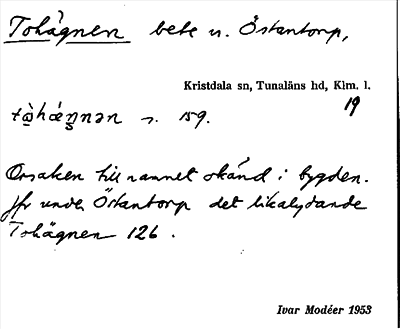 Tohägnen bete u. Östantorp,
Kristdala sn, Tunaläns hd, Klm. l.
19
s. 159.
Orsaken till namnet okänd i bygden.
Jfr under Östantorp det likalydande
Tohägnen 126.
Ivar Modéer 1953